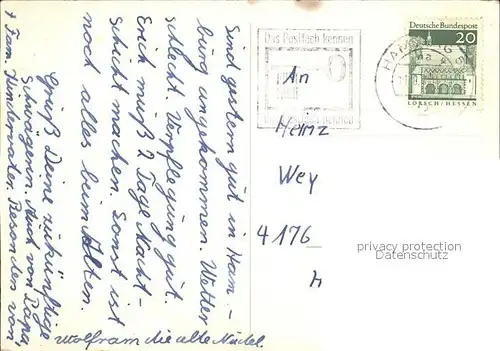 Sind gestern gut in Ham-
burg angekommen. Wetter
schlecht Verpflegung gut.
Erich muß 2 Tage Nacht-
schicht machen. Sonst ist
noch alles beim Alten.
Gruß Deine zukünftige
Schwägerin. Auch von Papa,
+ Fam. Hinderraten. Besonders von
Wolfram die alte Nudel.
Das Postfach kennen
An
Heinz
Wey
4176
Deutsche Bundespost
20
LORSCH/HESSEN
HAMBURG
privacy protection
Datenschutz